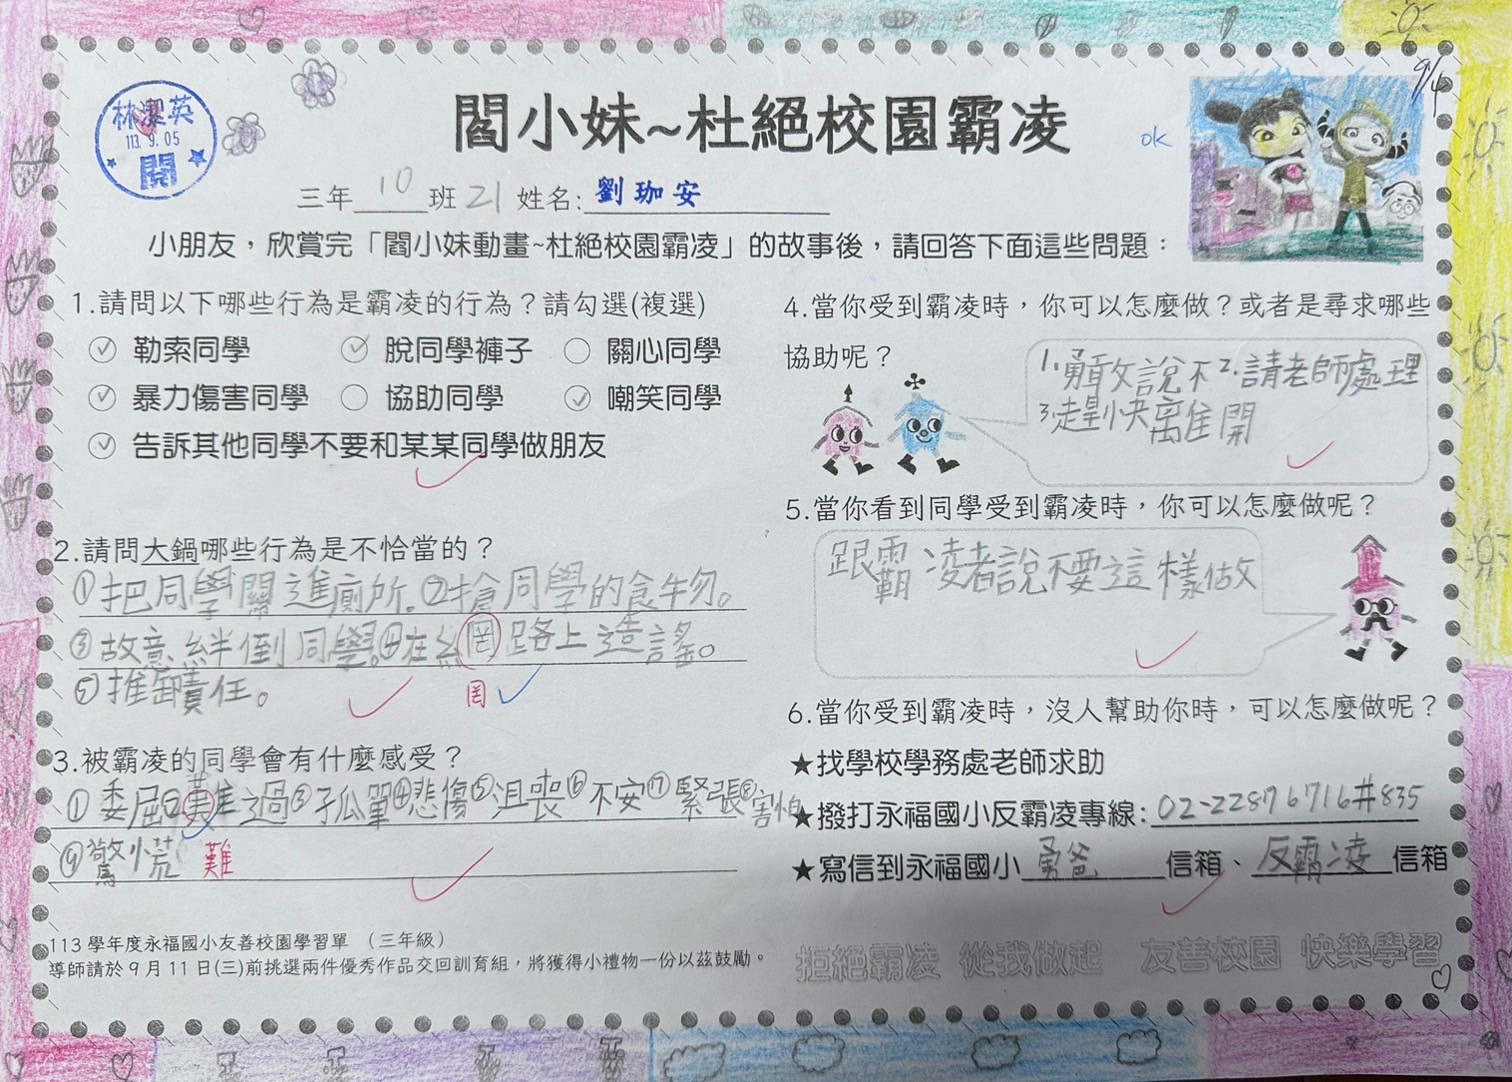 林潔英
113.9.05
閱
9/4
閻小妹~杜絕校園霸凌
ok
三年10班21 姓名:劉珈安
小朋友，欣賞完「閻小妹動畫~杜絕校園霸凌」的故事後，請回答下面這些問題：
1.請問以下哪些行為是霸凌的行為？請勾選(複選)
✓ 勒索同學 ✓ 脫同學褲子 ○ 關心同學
✓ 暴力傷害同學 ○ 協助同學 ✓ 嘲笑同學
✓ 告訴其他同學不要和某某同學做朋友
2.請問大鍋哪些行為是不恰當的？
①把同學關進廁所。②搶同學的食物。
③故意絆倒同學。④在網路上造謠。
⑤推卸責任。
罔
3.被霸凌的同學會有什麼感受？
①委屈②難過③孤單④悲傷⑤沮喪⑥不安⑦緊張⑧害怕
⑨驚慌 難
113 學年度永福國小友善校園學習單 （三年級）
導師請於 9 月 11 日(三)前挑選兩件優秀作品交回訓育組，將獲得小禮物一份以茲鼓勵。
4.當你受到霸凌時，你可以怎麼做？或者是尋求哪些
協助呢？
1.勇敢說不2.請老師處理
3.趕快離開
5.當你看到同學受到霸凌時，你可以怎麼做呢？
跟霸凌者說不要這樣做
6.當你受到霸凌時，沒人幫助你時，可以怎麼做呢？
★找學校學務處老師求助
★撥打永福國小反霸凌專線:02-22876716#835
★寫信到永福國小勇爸信箱、反霸凌信箱
拒絕霸凌 從我做起 友善校園 快樂學習